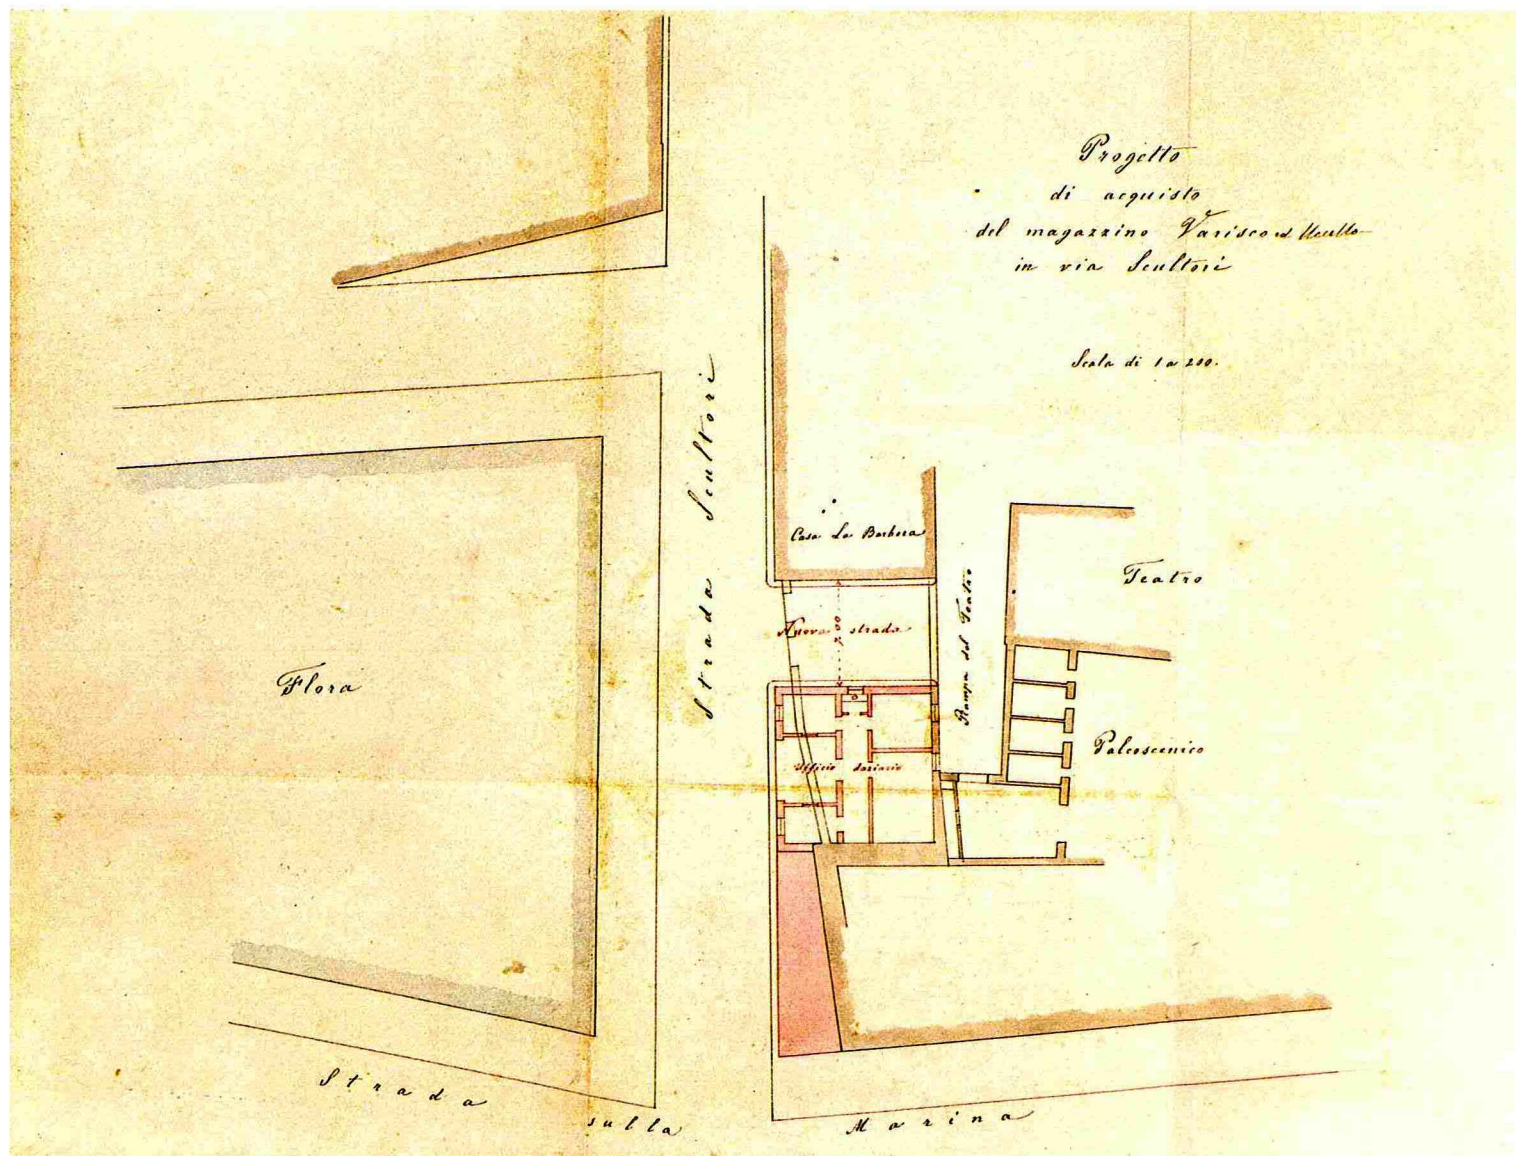 Progetto
di acquisto
del magazzino Varisco ed
in via Scultori
Scala di 1 a 200.
Strada Scultori
Casa La Barbera
Teatro
Nuova strada
7,00
Rampa del Teatro
Flora
Palcoscenico
Ufficio daziario
Strada sulla Marina